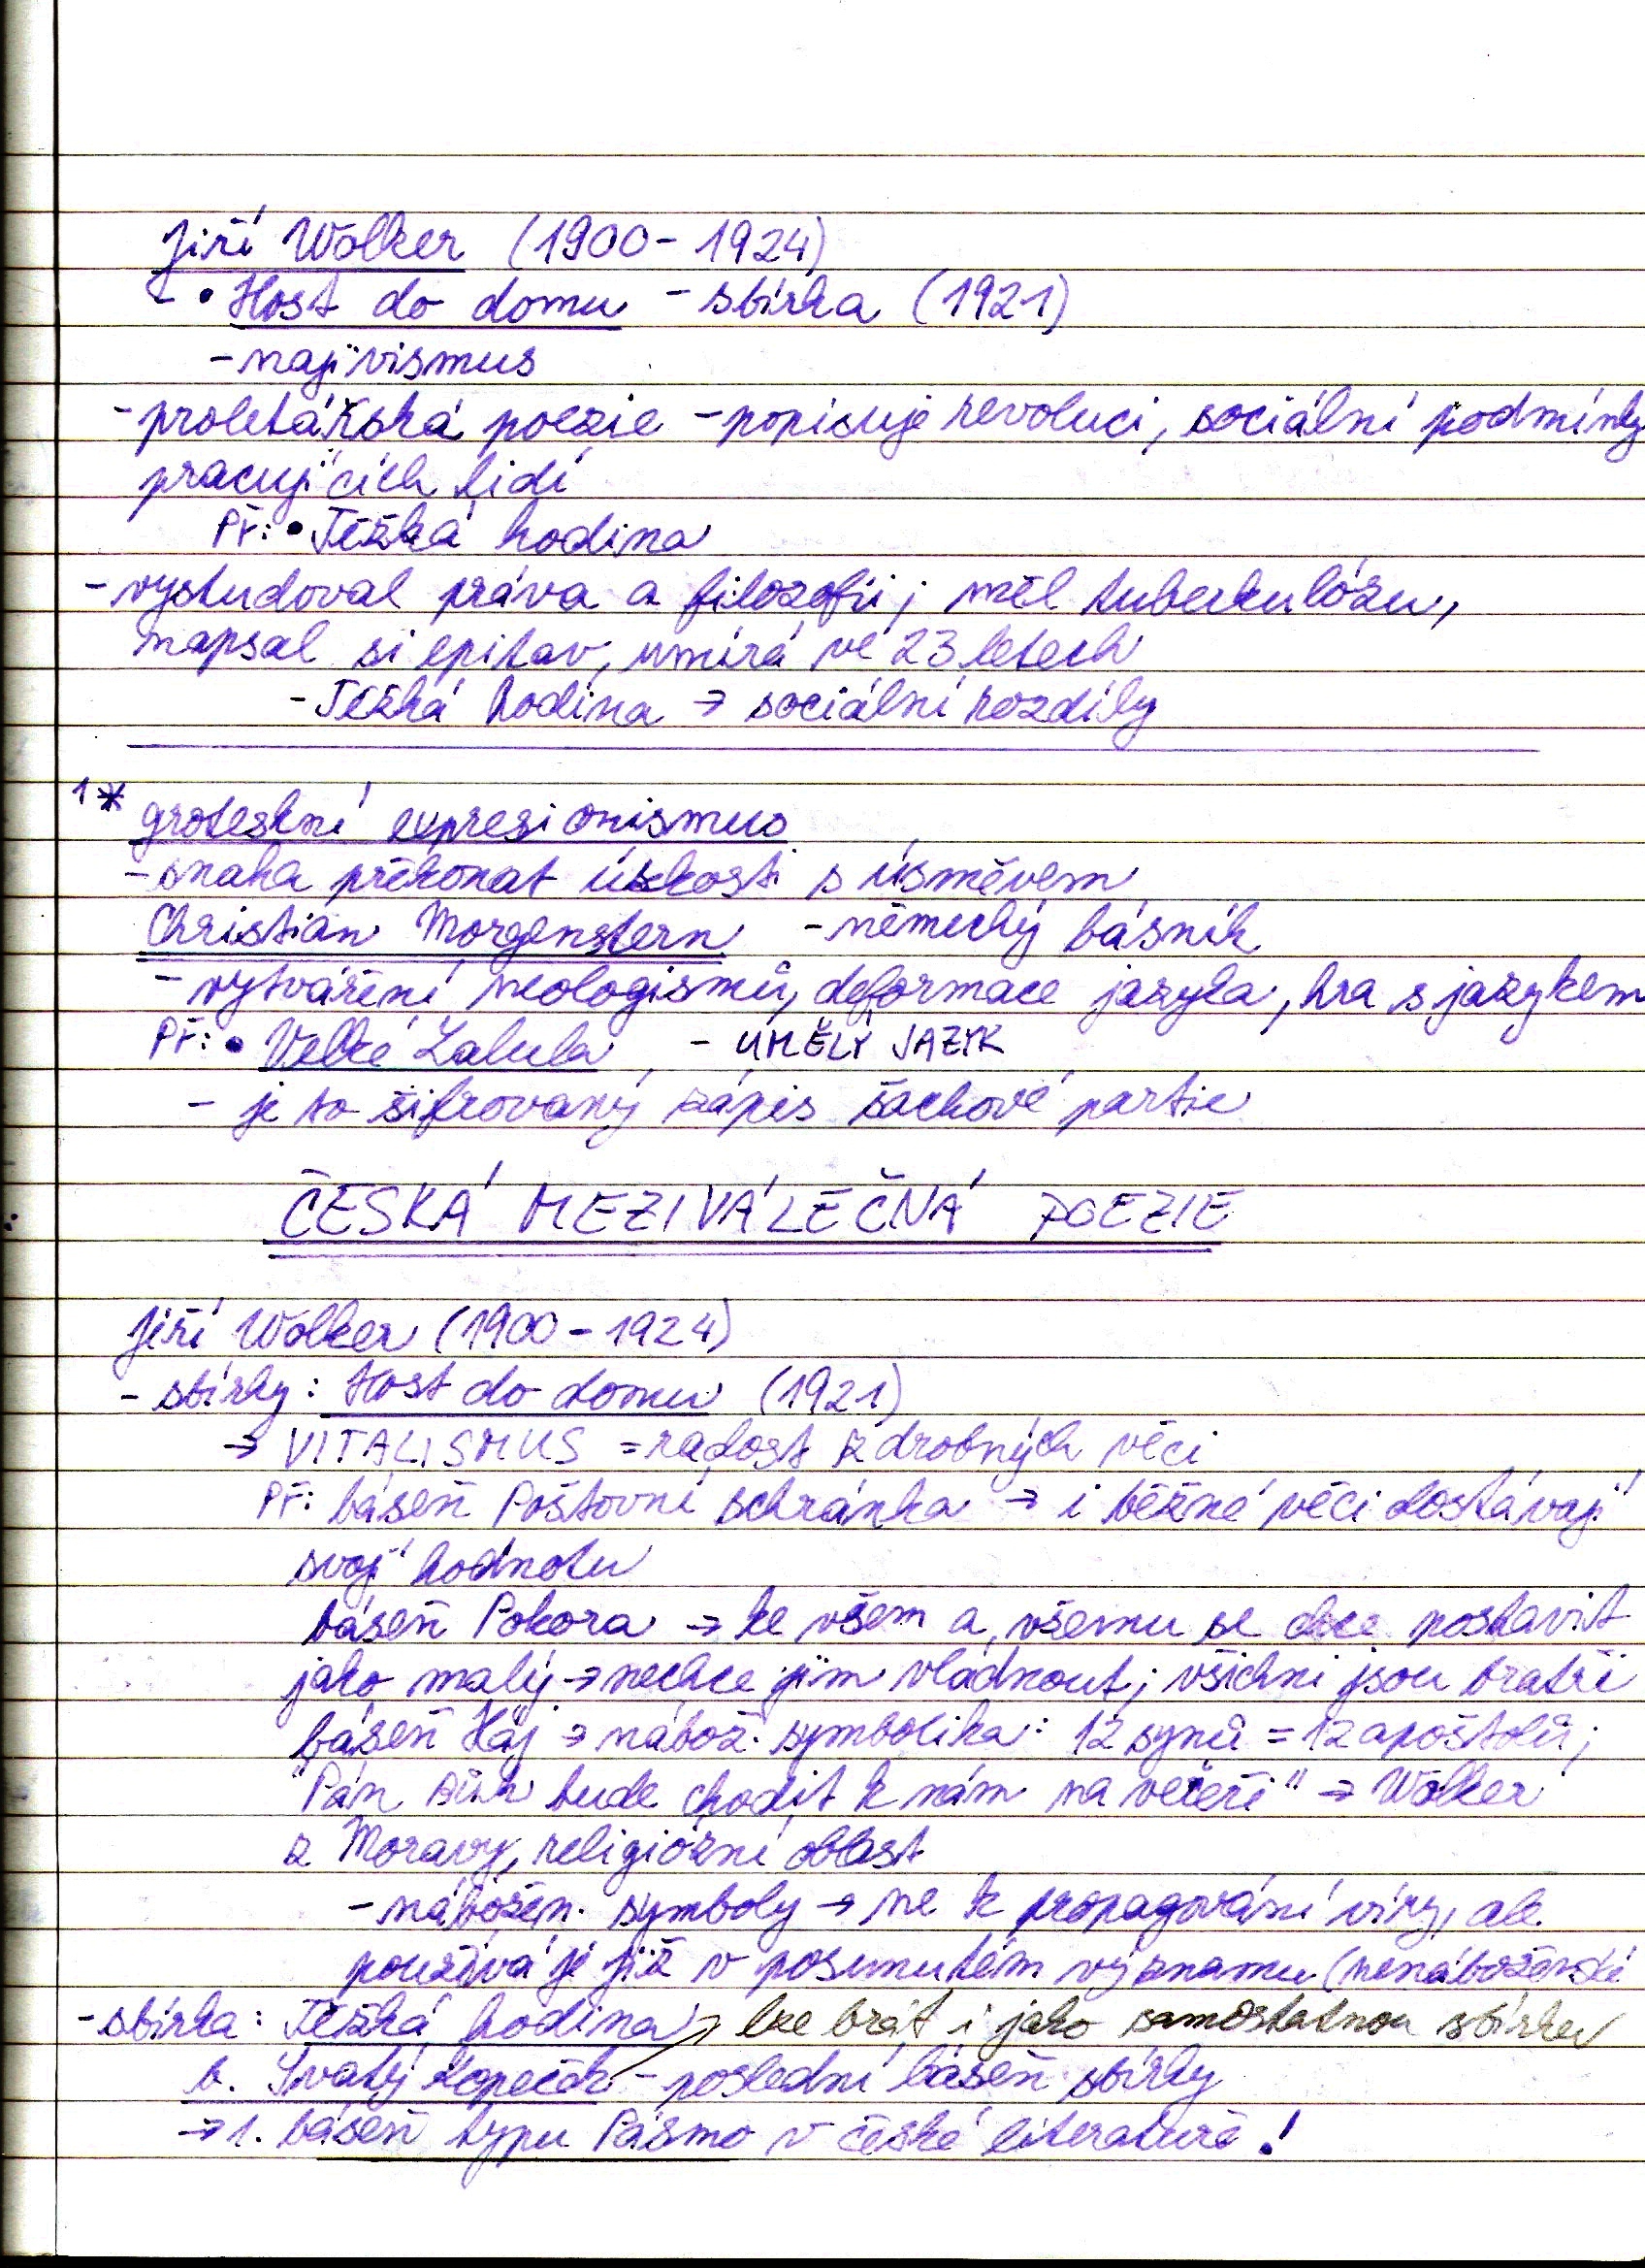 Jiří Wolker (1900-1924)
- • Host do domu - sbírka (1921)
- najivismus
- proletářská poezie - popisuje revoluci, sociální podmínky
pracujících lidí
Př: • Těžká hodina
- vystudoval práva a filozofii; měl tuberkulózu,
napsal si epitav, umírá ve 23 letech
- Těžká hodina → sociální rozdíly
1* groteskní expresionismus
- snaha překonat úzkosti s úsměvem
Christian Morgenstern - německý básník
- vytváření neologismů, deformace jazyka, hra s jazykem
Př: • Velké Lalula - UMĚLÝ JAZYK
- je to šifrovaný zápis šachové partie
ČESKÁ MEZIVÁLEČNÁ POEZIE
Jiří Wolker (1900-1924)
- sbírky: Host do domu (1921)
→ VITALISMUS = radost z drobných věcí
Př: báseň Poštovní schránka → i běžné věci dostávají
svojí hodnotu
báseň Pokora → ke všem a všemu se chce postavit
jako malý → nechce jim vládnout; všichni jsou bratři
báseň Háj → nábož. symbolika: 12 synů = 12 apoštolů;
"Pán Bůh bude chodit k nám na večeři" → Wolker
z Moravy, religiózní oblast
- nábožen. symboly → ne k propagování víry, ale
používá je již v posunutém významu (nenáboženské
- sbírka: Těžká hodina → lze brát i jako samostatnou sbírku
b. Svatý Kopeček - poslední báseň sbírky
→ 1. báseň typu Pásmo v české literatuře!